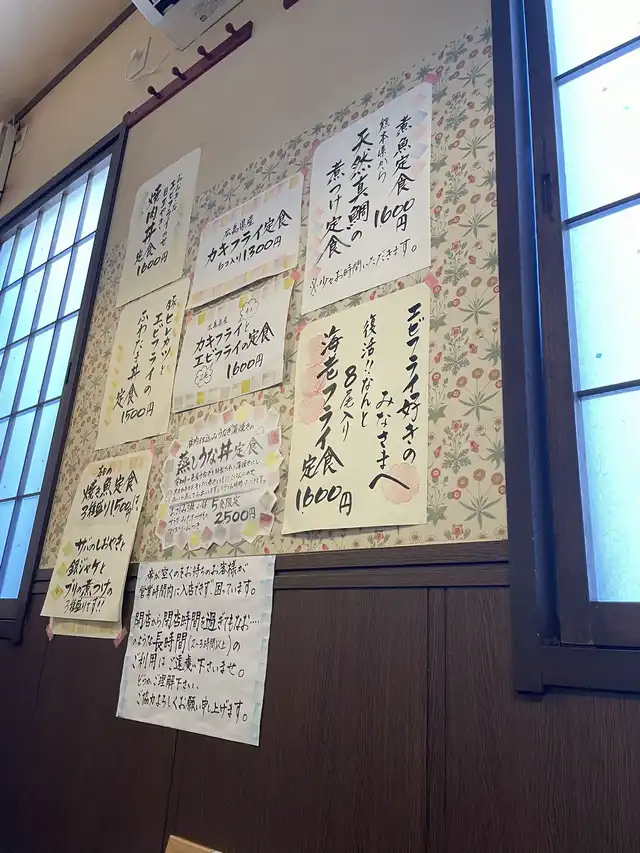 煮魚定食
熊本県から
1600円
天然真鯛の
煮つけ定食
※少々お時間いただきます。
焼肉丼
定食
1600円
広島県産
カキフライ定食
6コ入り1300円
広島県産
カキフライと
エビフライの定食
1600円
ヒレカツと
エビフライの
ふわたま丼
定食
1500円
エビフライ好きの
みなさまへ
復活!!なんと
8尾入り
海老フライ定食
1600円
蒸しうな丼定食
5食限定
2500円
焼き魚定食
3種盛り1500円
サバのしおやきと
銀ジャケと
ブリの煮つけの
3種盛りです!!
席が空くのをお待ちのお客様が
営業時間内に入店できず、困っています。
開店から閉店時間を過ぎてもなお…
のような長時間(2〜3時間以上)の
ご利用はご遠慮下さいませ。
どうかご理解下さい、
ご協力よろしくお願い申し上げます。